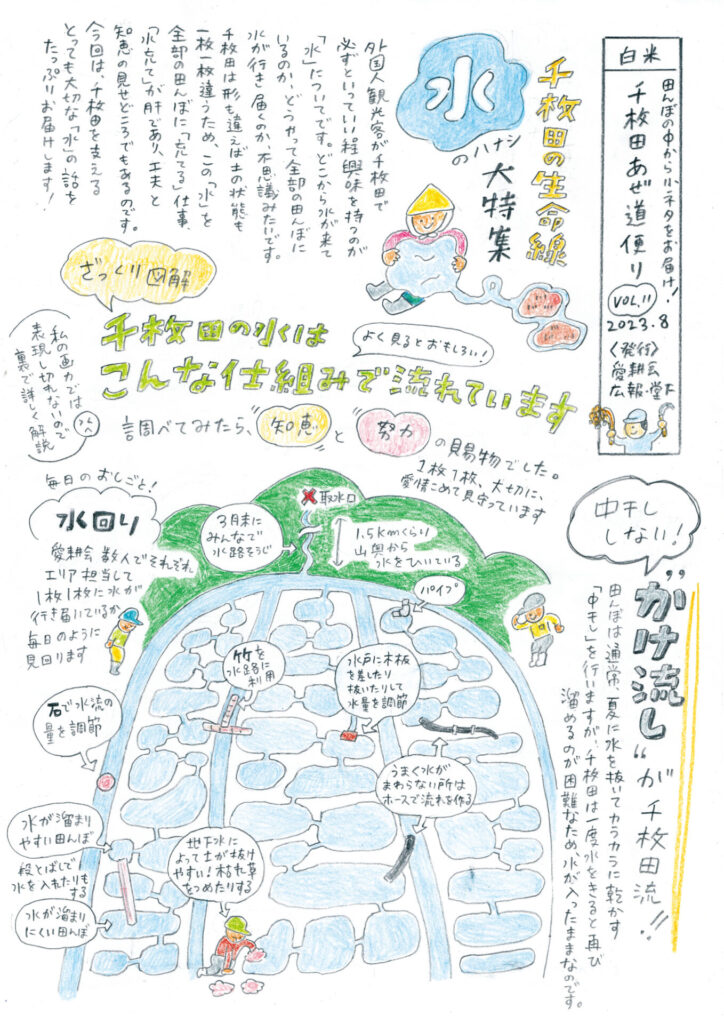 白米
田んぼの中から小ネタをお届け!
千枚田あぜ道便り
VOL.11
2023.8
〈発行〉
愛耕会
広報・堂下
千枚田の生命線
水
のハナシ
大特集
外国人観光客が千枚田で
必ずといっていい程興味を持つのが
「水」についてです。どこから水が来て
いるのか、どうやって全部の田んぼに
水が行き届くのか、不思議みたいです。
千枚田は形も違えば土の状態も
一枚一枚違うため、この「水」を
全部の田んぼに「充てる」仕事、
「水充て」が肝であり、工夫と
知恵の見せどころでもあるのです。
今回は、千枚田を支える
とっても大切な「水」の話を
たっぷりお届けします!
ざっくり図解
千枚田の水は
こんな仕組みで流れています
よく見るとおもしろい!
私の画力では
表現し切れないので
裏で詳しく解説
調べてみたら、"知恵"と"努力"の賜物でした。
1枚1枚、大切に、
愛情こめて見守っています
中干し
しない!
"かけ流し"が千枚田流!!
田んぼは通常、夏に水を抜いてカラカラに乾かす
「中干し」を行いますが、千枚田は一度水をきると再び
溜めるのが困難なため水が入ったままなのです。
毎日のおしごと!
水回り
愛耕会数人でそれぞれ
エリア担当して
1枚1枚に水が
行き届いているか
毎日のように
見回ります
取水口
3月末に
みんなで
水路そうじ
1.5kmくらい
山奥から
水をひいている
パイプ
竹を
水路に
利用
水戸に木板
を差したり
抜いたりして
水量を調節
石で水流の
量を調節
うまく水が
まわらない所は
ホースで流れを作る
水が溜まり
やすい田んぼ
段とばしで
水を入れたりも
する
水が溜まり
にくい田んぼ
地下水に
よって土が抜け
やすい!枯れ草
をつめたりする